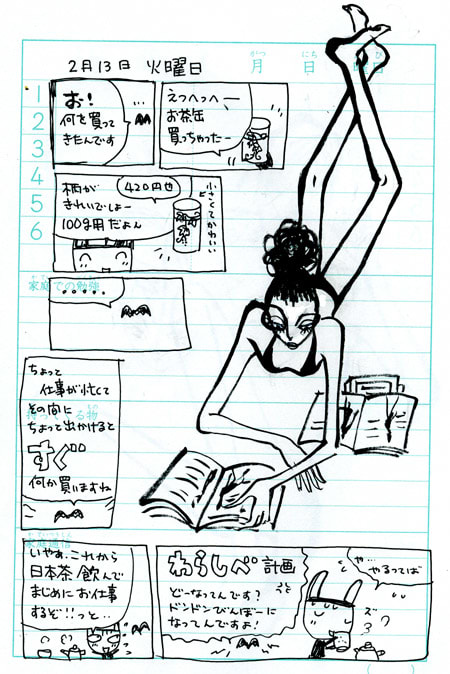 月 日 曜日
がつ にち び
2月13日 火曜日
1
2
3
4
5
6
お!
何を買って
きたんです
えっへっへー
お茶缶
買っちゃったー
柄が
きれいでしょー
100g用だよん
420円也
小さくてかわいい
家庭での勉強
・・・・・
ちょっと
仕事が忙くて
その間に
ちょっと出かけると
すぐ
何か買いますね
いやぁ、これから
日本茶飲んで
まじめにお仕事
するぞ!!っと…
わらしべ計画
どーなってんです?
ドンドンびんぼーに
なってんですよ!
や…
やるってば
ズ